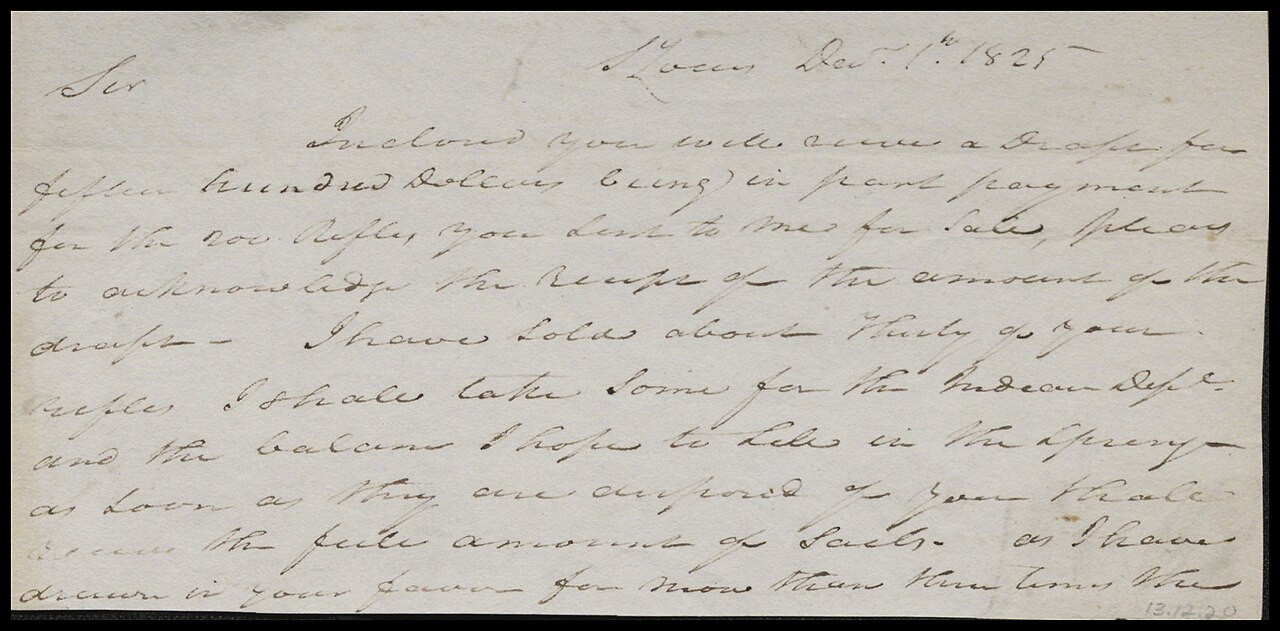 St Louis Decr. 1st. 1825
Sir
Inclosed you will receive a Draft for
fifteen hundred Dollars being in part payment
for the 200 Rifles you sent to me for Sale, pleas
to acknowledge the receipt of the amount of the
draft – I have sold about thirty of your
rifles I shall take some for the Indian Dept
and the balance I hope to sell in the Spring
as soon as they are disposed of you shall
receive the full amount of Sails – as I have
drawn in your favor for more than three times the
13.12.20